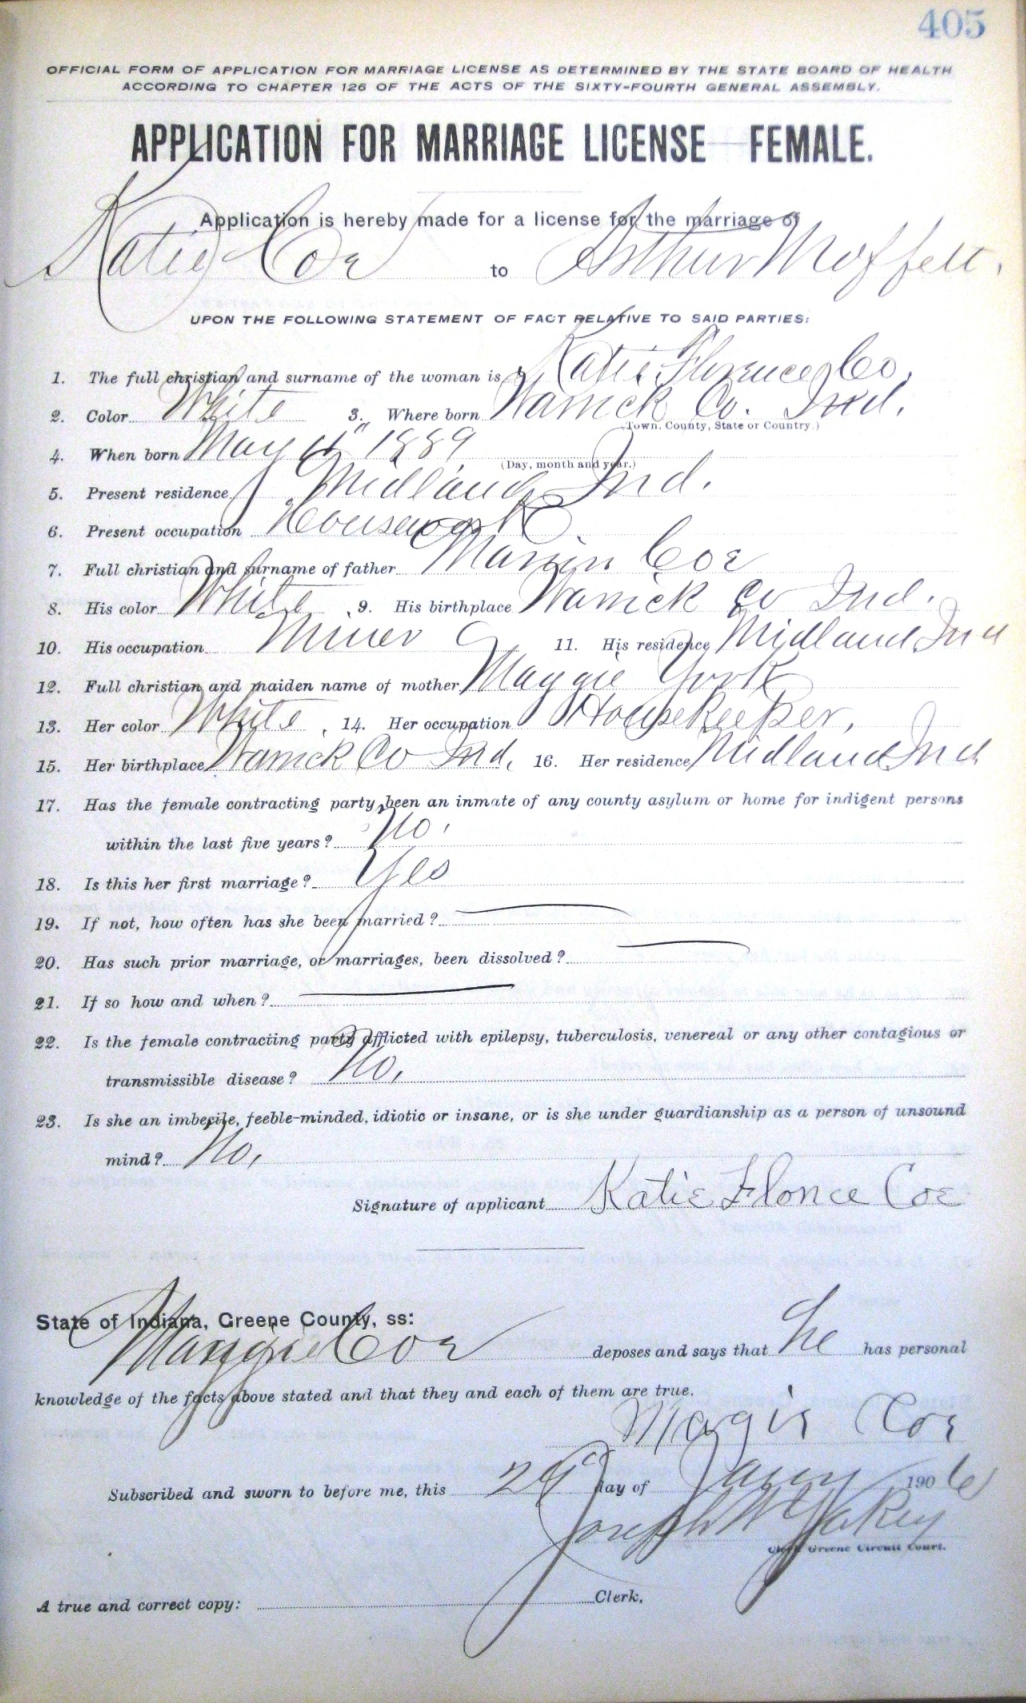 405
OFFICIAL FORM OF APPLICATION FOR MARRIAGE LICENSE AS DETERMINED BY THE STATE BOARD OF HEALTH
ACCORDING TO CHAPTER 126 OF THE ACTS OF THE SIXTY-FOURTH GENERAL ASSEMBLY.
APPLICATION FOR MARRIAGE LICENSE FEMALE.
Application is hereby made for a license for the marriage of
Katie Coe to Arthur Moffett.
UPON THE FOLLOWING STATEMENT OF FACT RELATIVE TO SAID PARTIES:
1. The full christian and surname of the woman is Katie Florence Co.
2. Color White 3. Where born Warrick Co. Ind.
(Town, County, State or Country.)
4. When born May 4" 1889
(Day, month and year.)
5. Present residence Midland, Ind.
6. Present occupation Housework
7. Full christian and surname of father Marion Coe
8. His color White 9. His birthplace Warrick Co Ind.
10. His occupation Miner 11. His residence Midland Ind
12. Full christian and maiden name of mother Maggie York
13. Her color White 14. Her occupation Housekeeper.
15. Her birthplace Warrick Co Ind. 16. Her residence Midland Ind
17. Has the female contracting party been an inmate of any county asylum or home for indigent persons
within the last five years? No.
18. Is this her first marriage? Yes
19. If not, how often has she been married?
20. Has such prior marriage, or marriages, been dissolved?
21. If so how and when?
22. Is the female contracting party afflicted with epilepsy, tuberculosis, venereal or any other contagious or
transmissible disease? No.
23. Is she an imbecile, feeble-minded, idiotic or insane, or is she under guardianship as a person of unsound
mind? No.
Signature of applicant Katie Flonce Coe
State of Indiana, Greene County, ss:
Maggie Coe deposes and says that he has personal
knowledge of the facts above stated and that they and each of them are true.
Magie Coe
Subscribed and sworn to before me, this 29" day of Jany 1906
Joseph W Yakey
Clerk Greene Circuit Court.
A true and correct copy: Clerk.